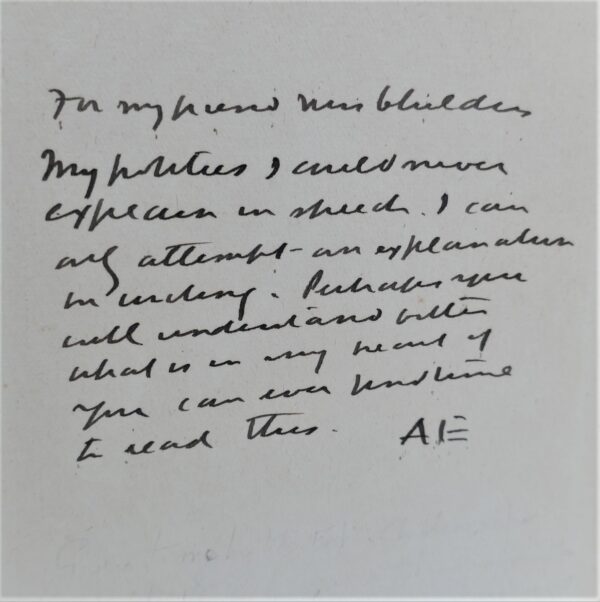 For my friend Mrs Childers
My politics I could never
explain in speech. I can
only attempt an explanation
in writing. Perhaps you
will understand better
what is in my heart if
you can ever find time
to read this.
AE